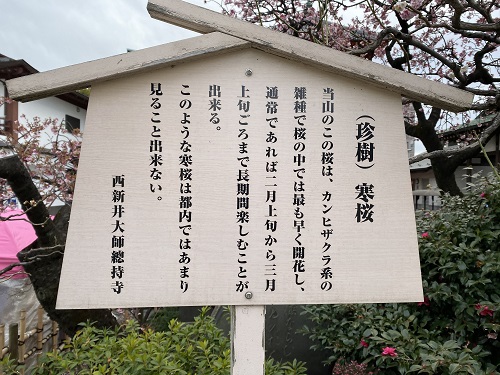 （珍樹）寒桜
当山のこの桜は、カンヒザクラ系の
雑種で桜の中では最も早く開花し、
通常であれば二月上旬から三月
上旬ごろまで長期間楽しむことが
出来る。
このような寒桜は都内ではあまり
見ること出来ない。
西新井大師總持寺